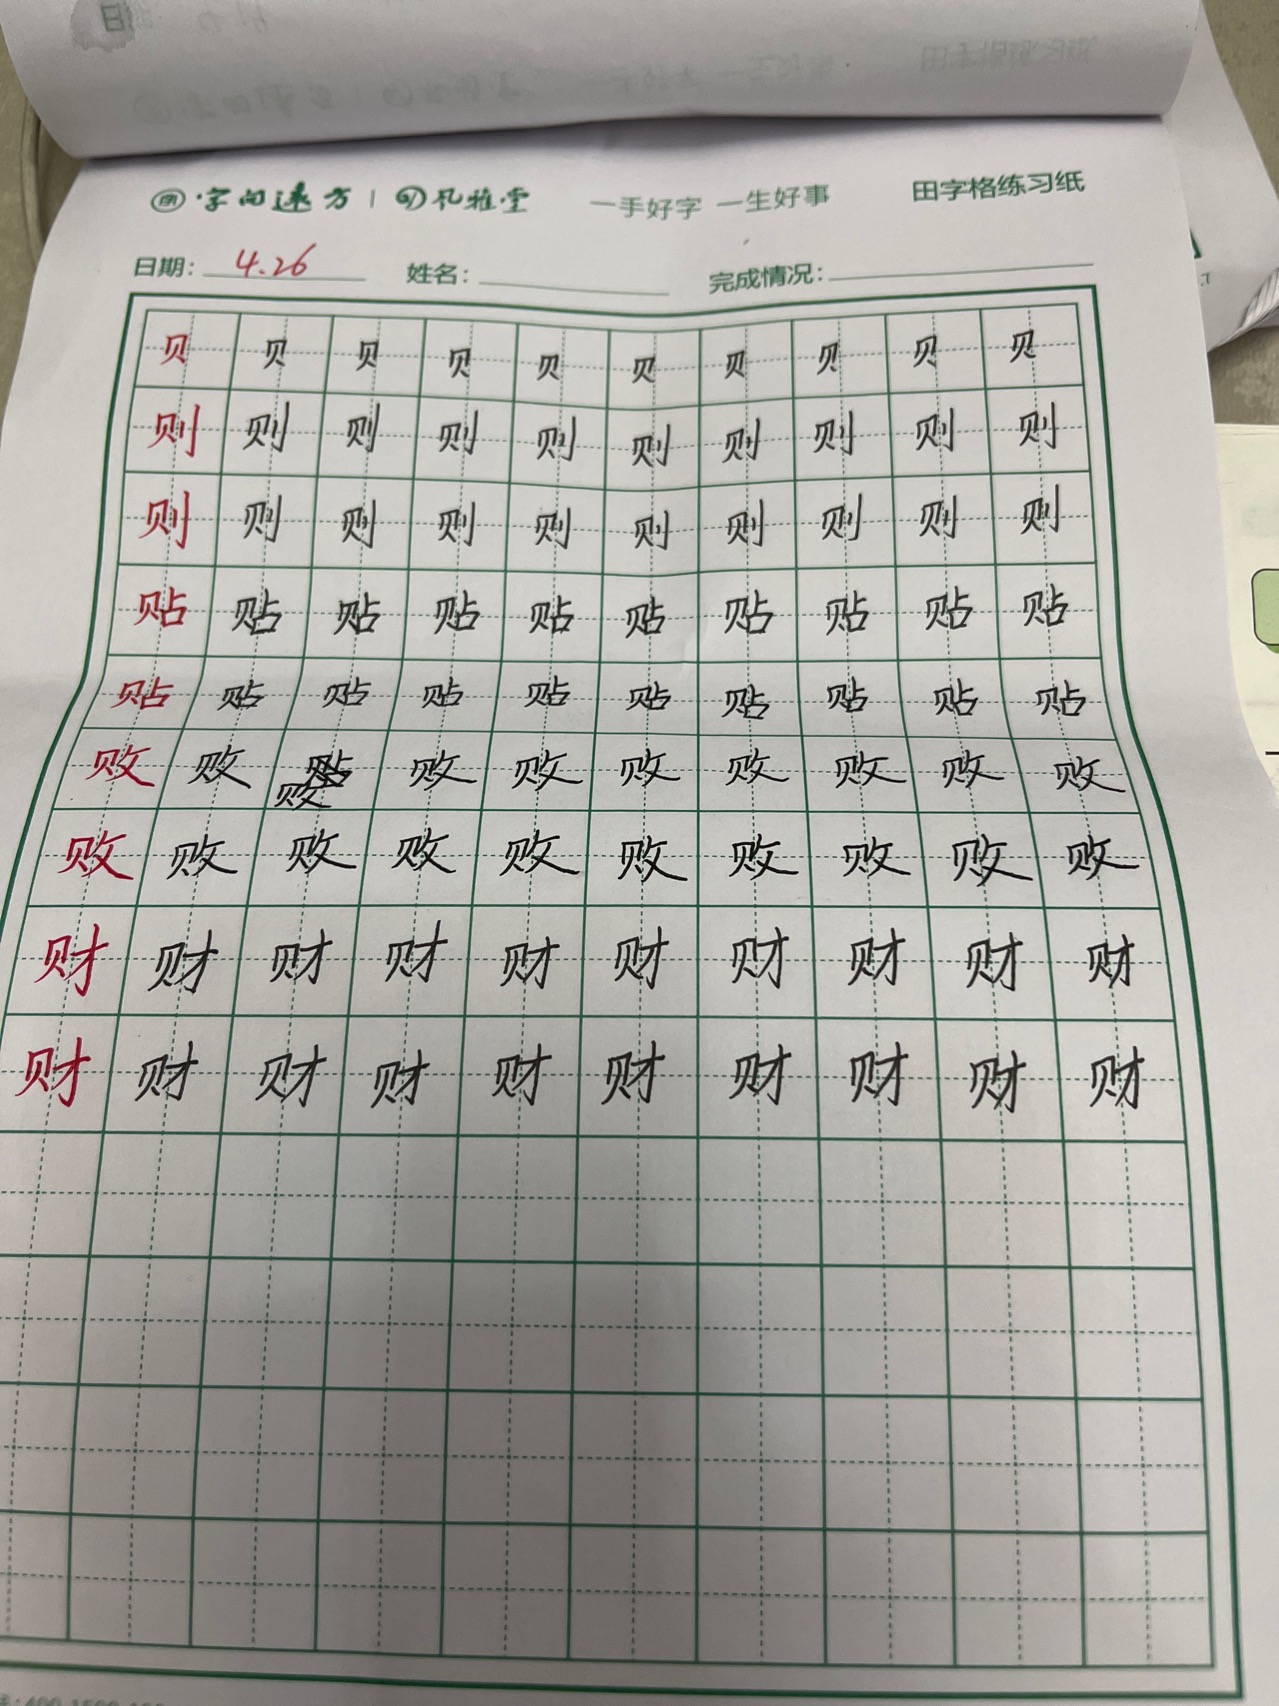 字向远方 | 孔雅堂 一手好字 一生好事 田字格练习纸
日期: 4.26 姓名: 完成情况:
贝 贝 贝 贝 贝 贝 贝 贝 贝 贝
则 则 则 则 则 则 则 则 则 则
则 则 则 则 则 则 则 则 则 则
贴 贴 贴 贴 贴 贴 贴 贴 贴 贴
贴 贴 贴 贴 贴 贴 贴 贴 贴 贴
败 败 败 败 败 败 败 败 败 败
败 败 败 败 败 败 败 败 败 败
财 财 财 财 财 财 财 财 财 财
财 财 财 财 财 财 财 财 财 财